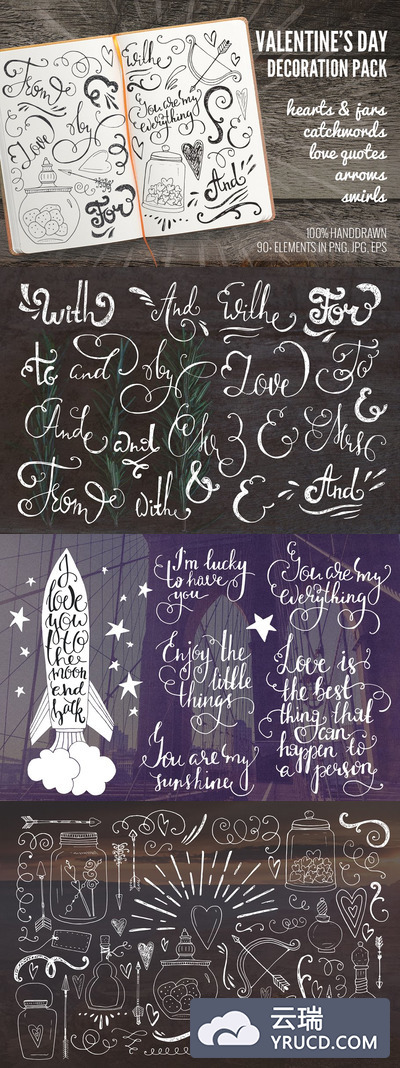 VALENTINE'S DAY
DECORATION PACK
hearts & jars
catchwords
love quotes
arrows
swirls
100% HANDDRAWN
90+ ELEMENTS IN PNG, JPG, EPS
From
Love
by
For
With
You are my
everything!
And
With And With For
to and by Love To
And and &
& Mrs
From with & & And
I
love
you
to
the
moon
and
back
I'm lucky
to have
you
Enjoy the
little
things
You are my
sunshine
You are my
everything
Love is
the best
thing that
can
happen to
a person
云瑞
YRUCD.COM